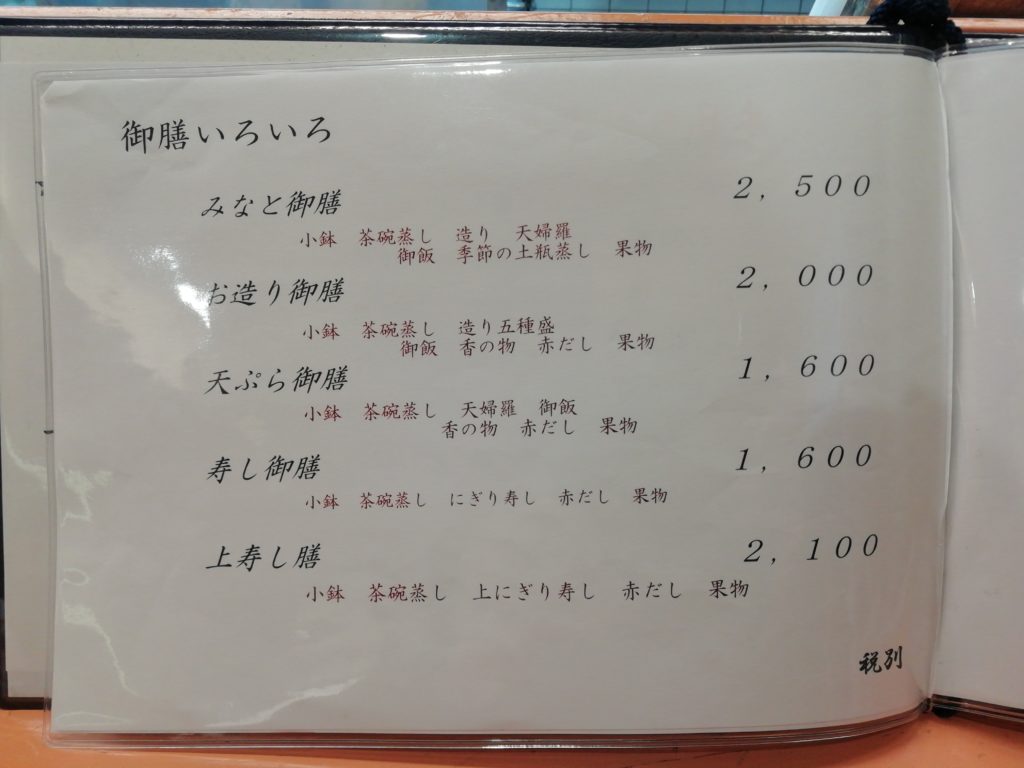 御膳いろいろ
みなと御膳 2,500
小鉢 茶碗蒸し 造り 天婦羅
御飯 季節の土瓶蒸し 果物
お造り御膳 2,000
小鉢 茶碗蒸し 造り五種盛
御飯 香の物 赤だし 果物
天ぷら御膳 1,600
小鉢 茶碗蒸し 天婦羅 御飯
香の物 赤だし 果物
寿し御膳 1,600
小鉢 茶碗蒸し にぎり寿し 赤だし 果物
上寿し膳 2,100
小鉢 茶碗蒸し 上にぎり寿し 赤だし 果物
税別